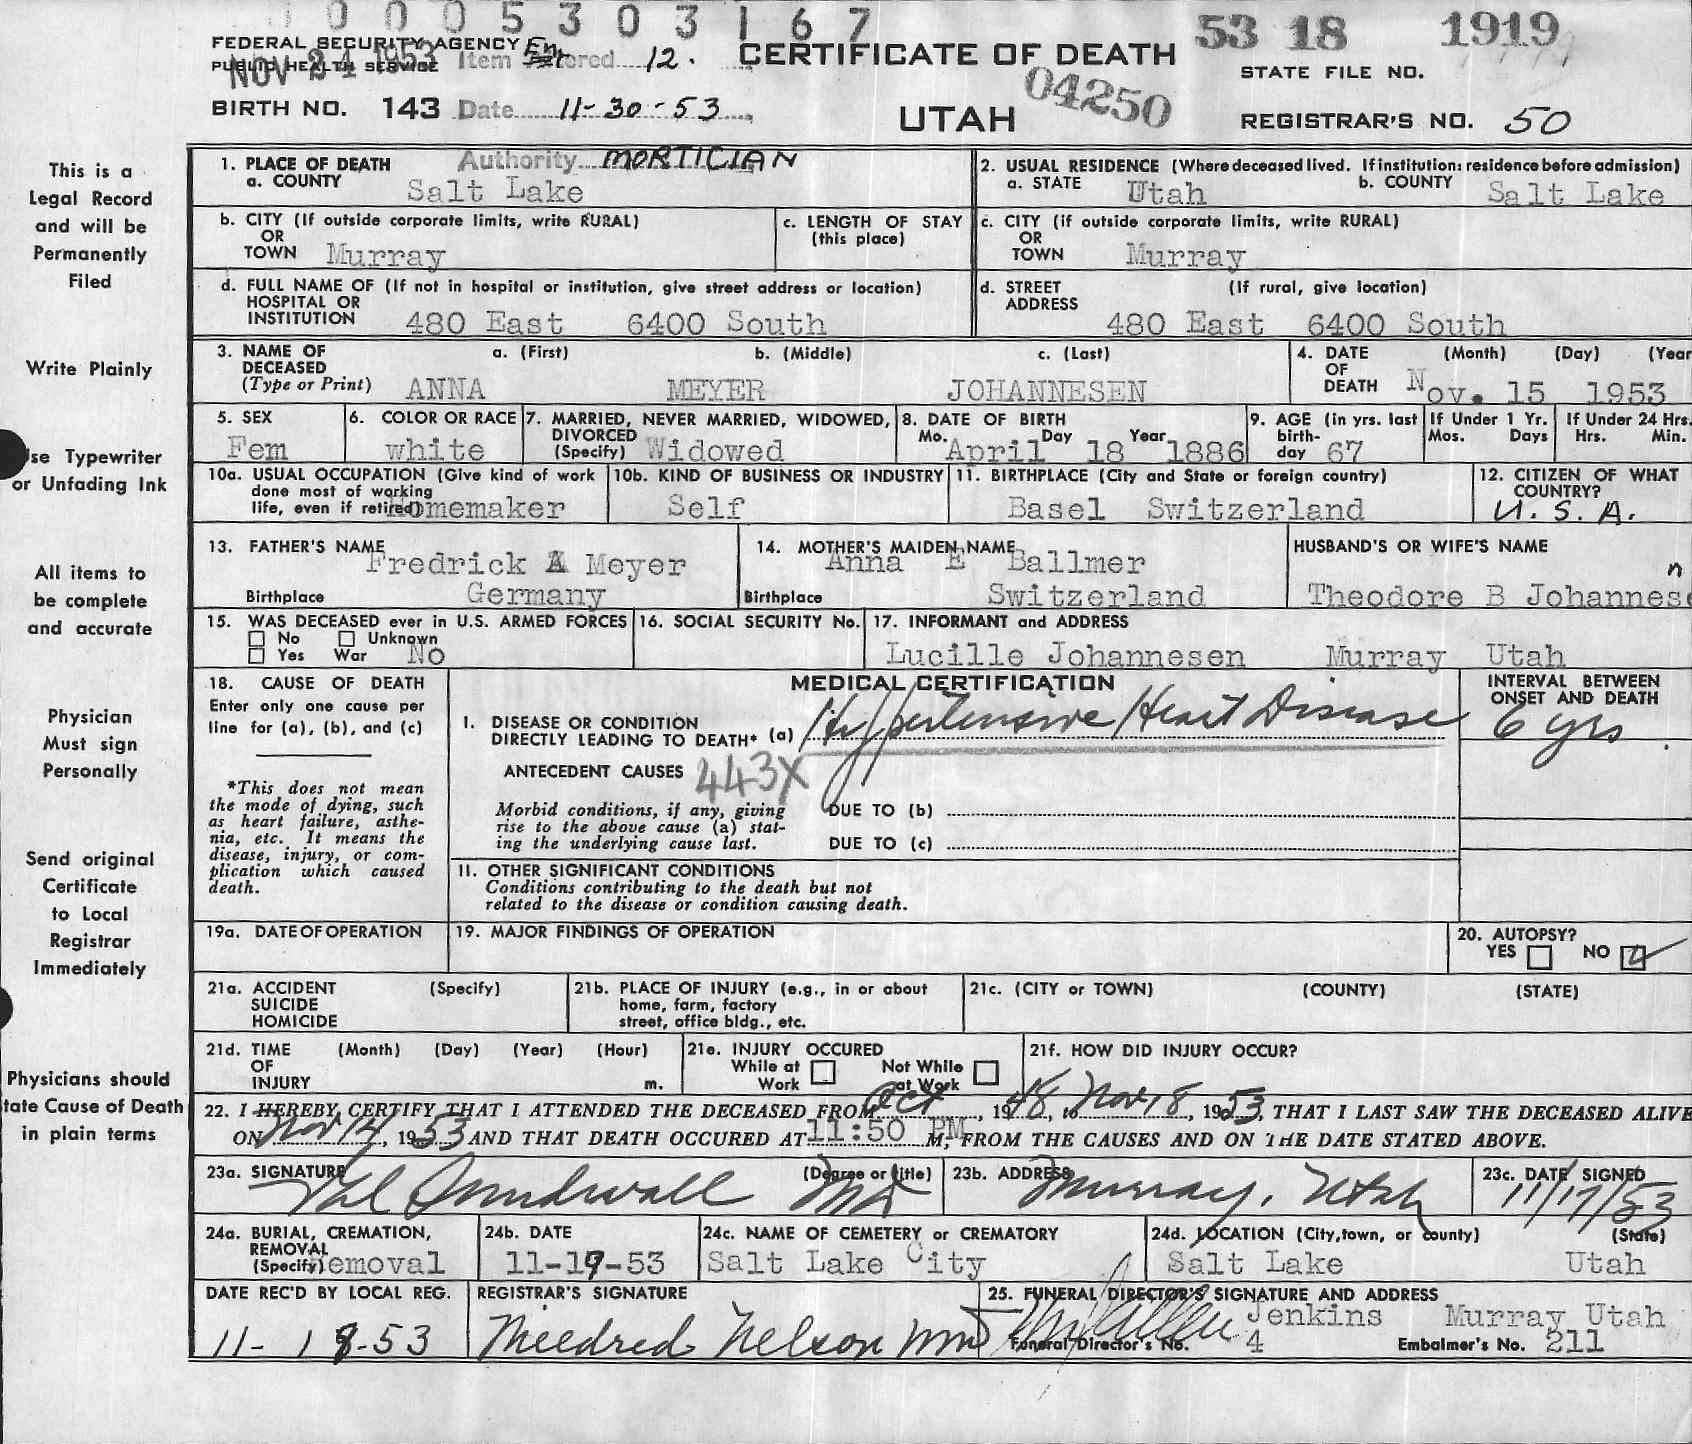 0 0 0 5 3 0 3 1 6 7
53 18 1919
FEDERAL SECURITY AGENCY
PUBLIC HEALTH SERVICE
NOV 24 1953
Item Entered 12.
CERTIFICATE OF DEATH
STATE FILE NO.
BIRTH NO. 143 Date 11-30-53
UTAH
04250
REGISTRAR'S NO. 50
This is a
Legal Record
and will be
Permanently
Filed
Write Plainly
se Typewriter
or Unfading Ink
All items to
be complete
and accurate
Physician
Must sign
Personally
Send original
Certificate
to Local
Registrar
Immediately
Physicians should
tate Cause of Death
in plain terms
1. PLACE OF DEATH Authority MORTICIAN
a. COUNTY Salt Lake
2. USUAL RESIDENCE (Where deceased lived. If institution: residence before admission)
a. STATE Utah b. COUNTY Salt Lake
b. CITY (If outside corporate limits, write RURAL)
OR
TOWN Murray
c. LENGTH OF STAY
(this place)
c. CITY (if outside corporate limits, write RURAL)
OR
TOWN Murray
d. FULL NAME OF (If not in hospital or institution, give street address or location)
HOSPITAL OR
INSTITUTION 480 East 6400 South
d. STREET (If rural, give location)
ADDRESS 480 East 6400 South
3. NAME OF a. (First) b. (Middle) c. (Last)
DECEASED
(Type or Print) ANNA MEYER JOHANNESEN
4. DATE (Month) (Day) (Year
OF
DEATH Nov. 15 1953
5. SEX
Fem
6. COLOR OR RACE
white
7. MARRIED, NEVER MARRIED, WIDOWED,
DIVORCED
(Specify) Widowed
8. DATE OF BIRTH
Mo. Day Year
April 18 1886
9. AGE (in yrs. last
birth-
day 67
If Under 1 Yr.
Mos. Days
If Under 24 Hrs.
Hrs. Min.
10a. USUAL OCCUPATION (Give kind of work
done most of working
life, even if retired) Homemaker
10b. KIND OF BUSINESS OR INDUSTRY
Self
11. BIRTHPLACE (City and State or foreign country)
Basel Switzerland
12. CITIZEN OF WHAT
COUNTRY?
U. S. A.
13. FATHER'S NAME
Fredrick A Meyer
Birthplace Germany
14. MOTHER'S MAIDEN NAME
Anna E Ballmer
Birthplace Switzerland
HUSBAND'S OR WIFE'S NAME
n
Theodore B Johannese
15. WAS DECEASED ever in U.S. ARMED FORCES
No Unknown
Yes War No
16. SOCIAL SECURITY No.
17. INFORMANT and ADDRESS
Lucille Johannesen Murray Utah
18. CAUSE OF DEATH
Enter only one cause per
line for (a), (b), and (c)
*This does not mean
the mode of dying, such
as heart failure, asthe-
nia, etc. It means the
disease, injury, or com-
plication which caused
death.
MEDICAL CERTIFICATION
INTERVAL BETWEEN
ONSET AND DEATH
I. DISEASE OR CONDITION
DIRECTLY LEADING TO DEATH* (a) Hypertensive Heart Disease 6 yrs
ANTECEDENT CAUSES 443X
Morbid conditions, if any, giving
rise to the above cause (a) stat-
ing the underlying cause last.
DUE TO (b)
DUE TO (c)
11. OTHER SIGNIFICANT CONDITIONS
Conditions contributing to the death but not
related to the disease or condition causing death.
19a. DATE OF OPERATION
19. MAJOR FINDINGS OF OPERATION
20. AUTOPSY?
YES NO
21a. ACCIDENT (Specify)
SUICIDE
HOMICIDE
21b. PLACE OF INJURY (e.g., in or about
home, farm, factory
street, office bldg., etc.
21c. (CITY or TOWN) (COUNTY) (STATE)
21d. TIME (Month) (Day) (Year) (Hour)
OF
INJURY m.
21e. INJURY OCCURED
While at Not While
Work at Work
21f. HOW DID INJURY OCCUR?
22. I HEREBY CERTIFY THAT I ATTENDED THE DECEASED FROM Oct, 1948, to Nov 18, 1953, THAT I LAST SAW THE DECEASED ALIVE
ON Nov 14, 1953 AND THAT DEATH OCCURED AT 11:50 PM M, FROM THE CAUSES AND ON THE DATE STATED ABOVE.
23a. SIGNATURE (Degree or title)
Val Sundwall MD
23b. ADDRESS
Murray, Utah
23c. DATE SIGNED
11/17/53
24a. BURIAL, CREMATION,
REMOVAL
(Specify) Removal
24b. DATE
11-19-53
24c. NAME OF CEMETERY or CREMATORY
Salt Lake City
24d. LOCATION (City, town, or county) (State)
Salt Lake Utah
DATE REC'D BY LOCAL REG.
11-18-53
REGISTRAR'S SIGNATURE
Mildred Nelson
25. FUNERAL DIRECTOR'S SIGNATURE AND ADDRESS
Jenkins Murray Utah
Funeral Director's No. 4 Embalmer's No. 211